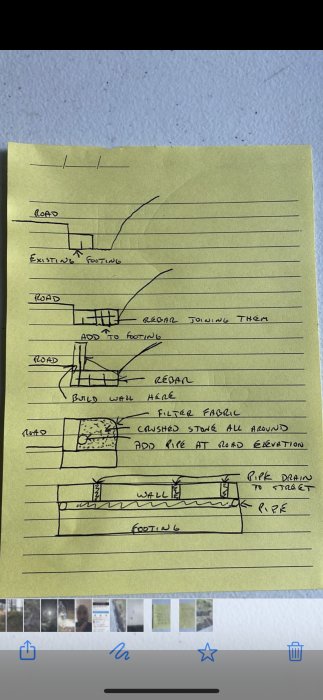 ROAD
EXISTING FOOTING
ROAD
REBAR JOINING THEM
ADD TO FOOTING
ROAD
REBAR
BUILD WALL HERE
FILTER FABRIC
CRUSHED STONE ALL AROUND
ROAD
ADD PIPE AT ROAD ELEVATION
PIPE DRAIN
TO STREET
WALL
PIPE
FOOTING